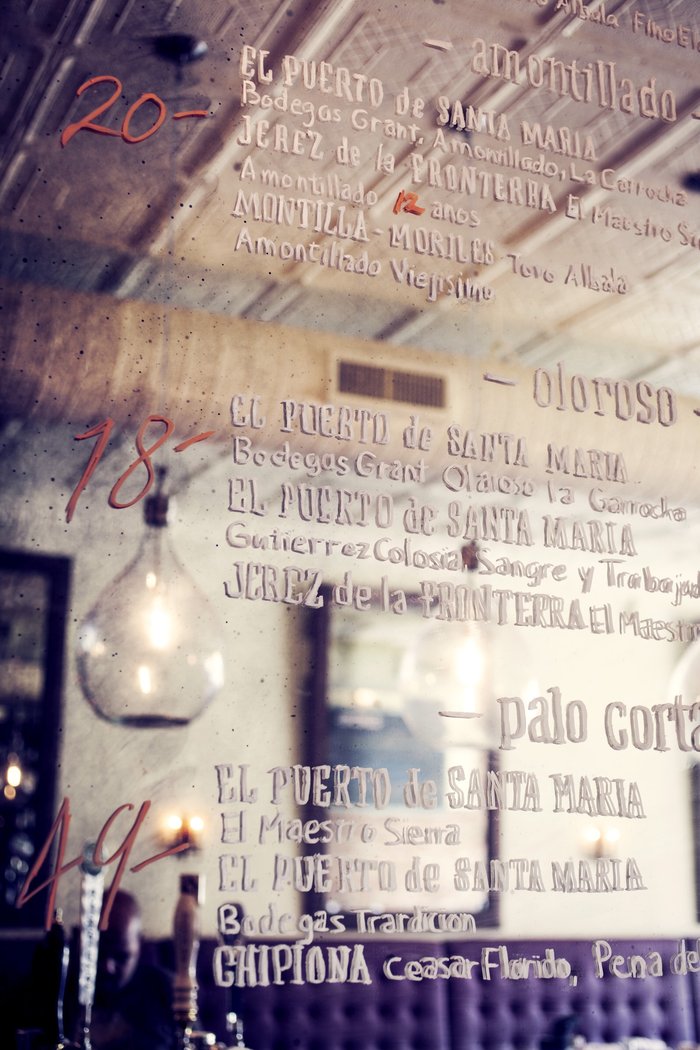 Albala Fino El
— amontillado -
20-
EL PUERTO de SANTA MARIA
Bodegas Grant, Amontillado, La Garrocha
JEREZ de la FRONTERRA El Maestro
Amontillado 12 anos
MONTILLA-MORILES Toro Albala
Amontillado Viejisimo
— oloroso
18-
EL PUERTO de SANTA MARIA
Bodegas Grant Oloroso la Garrocha
EL PUERTO de SANTA MARIA
Gutierrez Colosia Sangre y Trabajad
JEREZ de la FRONTERRA El Maestr
— palo corta
49-
EL PUERTO de SANTA MARIA
El Maestro Sierra
EL PUERTO de SANTA MARIA
Bodegas Trardicion
CHIPIONA Ceasar Florido, Pena de